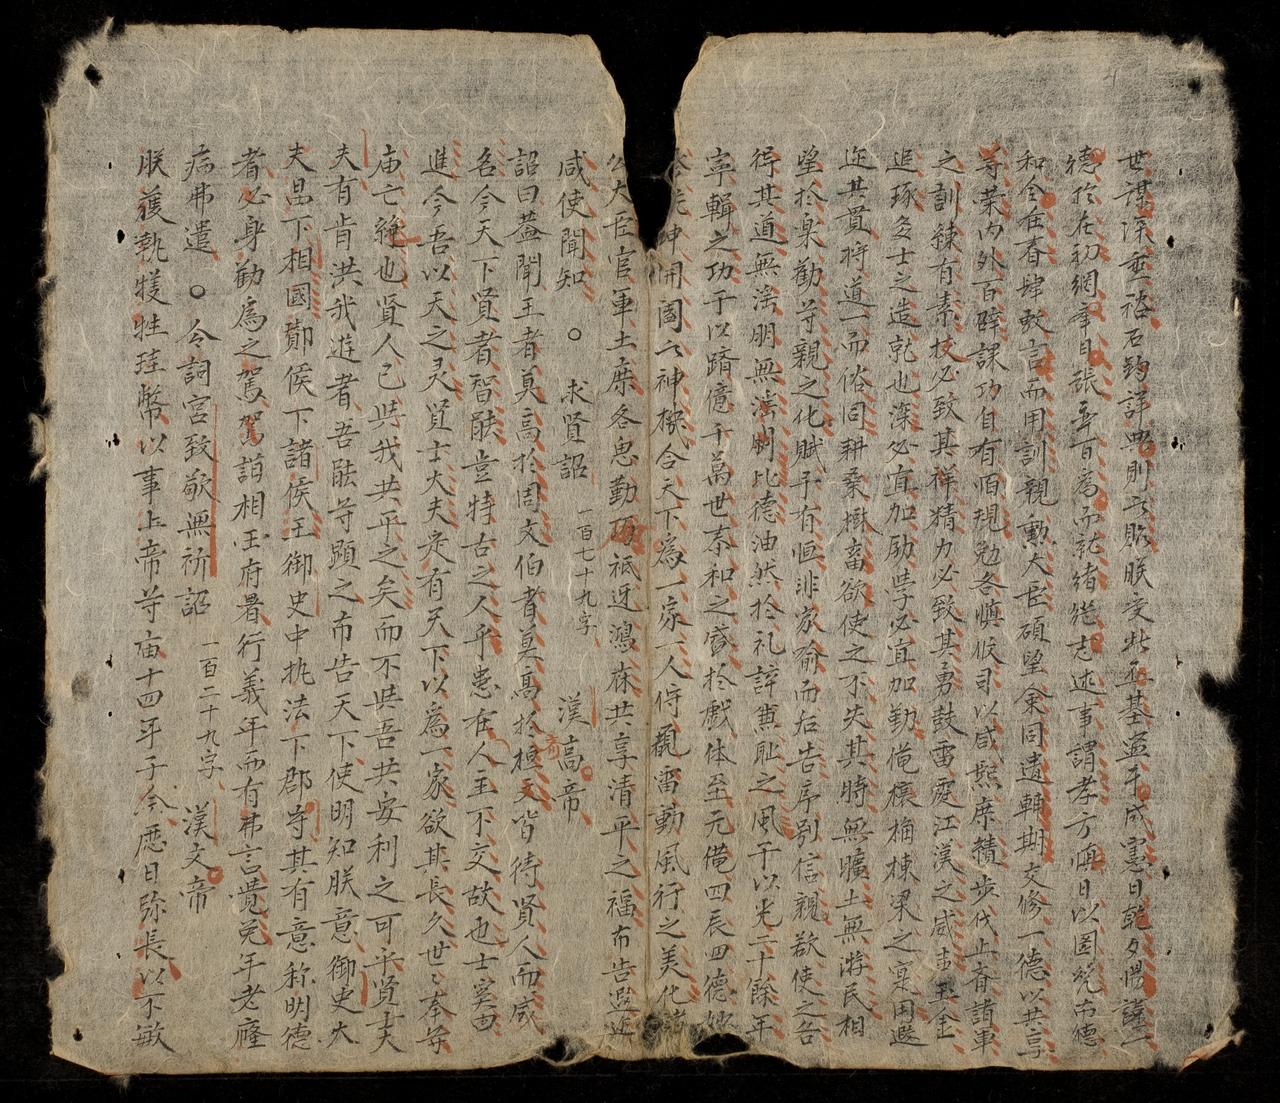 世謀深垂裕石鈞詳典則以貽朕受此丕基盈乎成憲日乾夕惕謹二
德於在初網舉目張奉百為而就緒繼志述事謂孝方興日以圖統布德
和令在春肆敷言而用訓親勳大臣碩望宜同遺輔期交修一德以共享
等業內外百辟課功自有陌規勉各慎候司以咸熙庶績步伐止齊諸軍
之訓練有素技必致其祥精力必致其勇鼓雷霆江漢之威玉金
追琢多士之造就也深必直加勵學必直加勤俺穰桷棟梁之寔用遐
迩其置將道一而俗同耕桑樹畜欲使之不失其時無曠土無游民相
望於臬勸等親之化賦予有恒非家喻而后告序別信親欲使之各
得其道無淫朋無淫制比德油然於礼誶興耻之風于以光二十餘年
寧輯之功于以躋億千萬世泰和之盛於戲体至元俺四辰四德妙
神開闔之神機合天下為一家一人侍觀雷動風行之美化
大臣官軍士庶各思勤 祗迓鴻庥共享清平之福布告遐迩
咸使聞知 ○ 求賢詔 一百七十九字 漢高帝
詔曰蓋聞王者莫高於周文伯者莫高於桓文皆待賢人而成
名今天下賢者智能豈特古之人乎患在人主不交故也士奚由
進今吾以天之灵賢士大夫定有天下以為一家欲其長久世〻奉守
庙亡絕也賢人已共我共平之矣而不共吾共安利之可乎賢士大
夫有肯洪我遊者吾能等顕之布告天下使明知朕意御史大
夫昌下相國鄼侯下諸侯王御史中执法下郡守其有意称明德
者必身勸為之駕駕詣相王府署行義年而有弗言覺免年老癃
病弗遣 ○ 令詞官致敬無祈詔 一百二十九字 漢文帝
朕獲執犧牲珪幣以事上帝等庙十四年于今歷日弥長以不敏